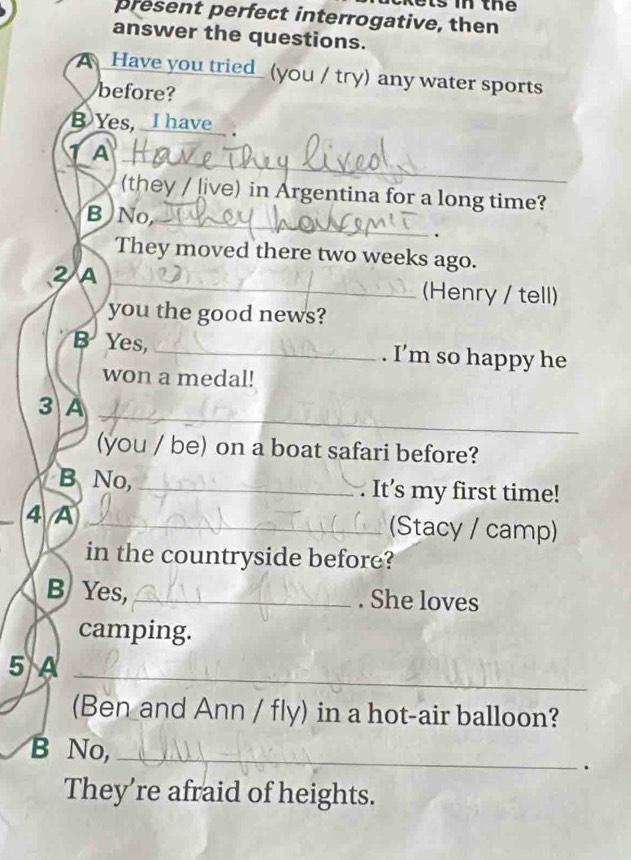 present perfect interrogative, then
answer the questions.
A Have you tried (you / try) any water sports
before?
B Yes, I have .
1 A Have They lived
(they / live) in Argentina for a long time?
B No, They haven't .
They moved there two weeks ago.
2 A (Henry / tell)
you the good news?
B Yes, . I'm so happy he
won a medal!
3 A
(you / be) on a boat safari before?
B No, . It's my first time!
4 A (Stacy / camp)
in the countryside before?
B Yes, . She loves
camping.
5 A
(Ben and Ann / fly) in a hot-air balloon?
B No, .
They're afraid of heights.